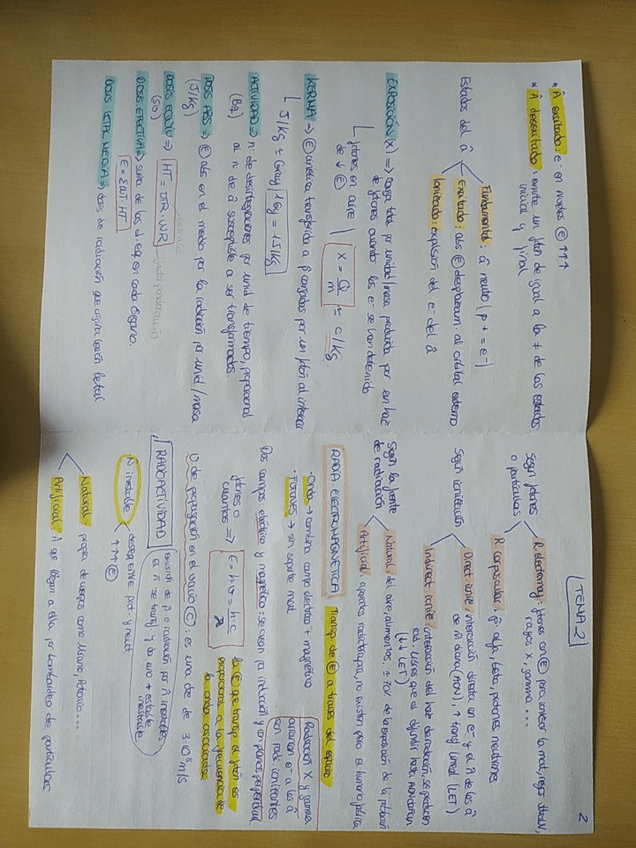 * Â excitado: e⁻ en niveles Ⓔ ↑↑↑
* Â desexcitado: emite un fotón de igual a la ≠ de los estados
inicial y final
Estados del â
Fundamental: â neutro (p+ = e-)
Excitado: abs Ⓔ desplazam. al orbital externo
Ionizado: expulsión del e⁻ del â
EXPOSICIÓN (X) => carga total por unidad/masa producida por un haz
de fotones cuando los e⁻ se han detenido
fotones en aire
de ↓ Ⓔ
X = Q/m = C/kg
KERMA => Ⓔ cinética transferida a p cargadas por un fotón al interac
J/kg = Gray | 1Gy = 1J/kg
ACTIVIDAD => nº de desintegraciones por unid de tiempo, proporcional
(Bq) al nº de â susceptible a ser transformados.
DOSIS ABS => Ⓔ abs en el medio por la radiación por unid/masa
(J/kg)
DOSIS EQUIV => HT = DTR · WR
(SV)
DOSIS EFECTIVA => suma de las d. eq en cada órgano.
E = ΣWT·HT
DOSIS LETAL MEDIA => dosis de radiación que origina lesión letal
2
TEMA 2
Según fotones
o partículas
R. electromag: fotones en Ⓔ para ionizar la mat,
rayos X, gamma...
R corpuscular: alfa, beta, protones, neutrones
Según ionización
Direct. ionit: interacción directa en e⁻ y el n̂ de los â
↑ transf lineal (LET)
Indirect. ionit: interacción del haz de radiación, se producen
(↓↓ LET)
Según la fuente
de radiación
Natural: del aire, alimentos, de la exposición de la población
Artificial: aparatos radioterapia, no existen para el humano
RADIA. ELECTROMAGNÉTICA Transp de Ⓔ a traves del espacio
· Onda → combina campo eléctrico + magnético
· FOTONES → sin soporte mat.
Radiación X y gamma
arrancan e⁻ a los â
son radi. ionizantes
Dos campos eléctrico y magnético: se crean por inducción y son planos perpendicul.
fotones o
cuantos => E = h·υ = h·c/λ
La Ⓔ que transp el fotón es
proporcional a la frecuencia de
la onda asociada
V de propagación en el vacío (C): es una cte de 3·10⁸ m/s
RADIOACTIVIDAD
emisión de p o radiación por n̂ inestable,
el n̂ se transf y da uno + estable
inestable
N inestable
desequ entre prot y neut
↑↑↑ Ⓔ
Natural: propia de cuerpos como Uranio, Potasio...
Artificial: n̂ que llegan a ella por bombardeo de partículas